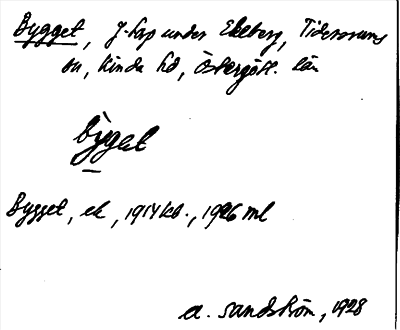 Bygget, J-lap under Ekeberg, Tidersrums
sn, Kinda hd, Östergötl. län
by̆get
Bygget, ek, 1914 kb., 1926 ml
A. Sandström, 1928